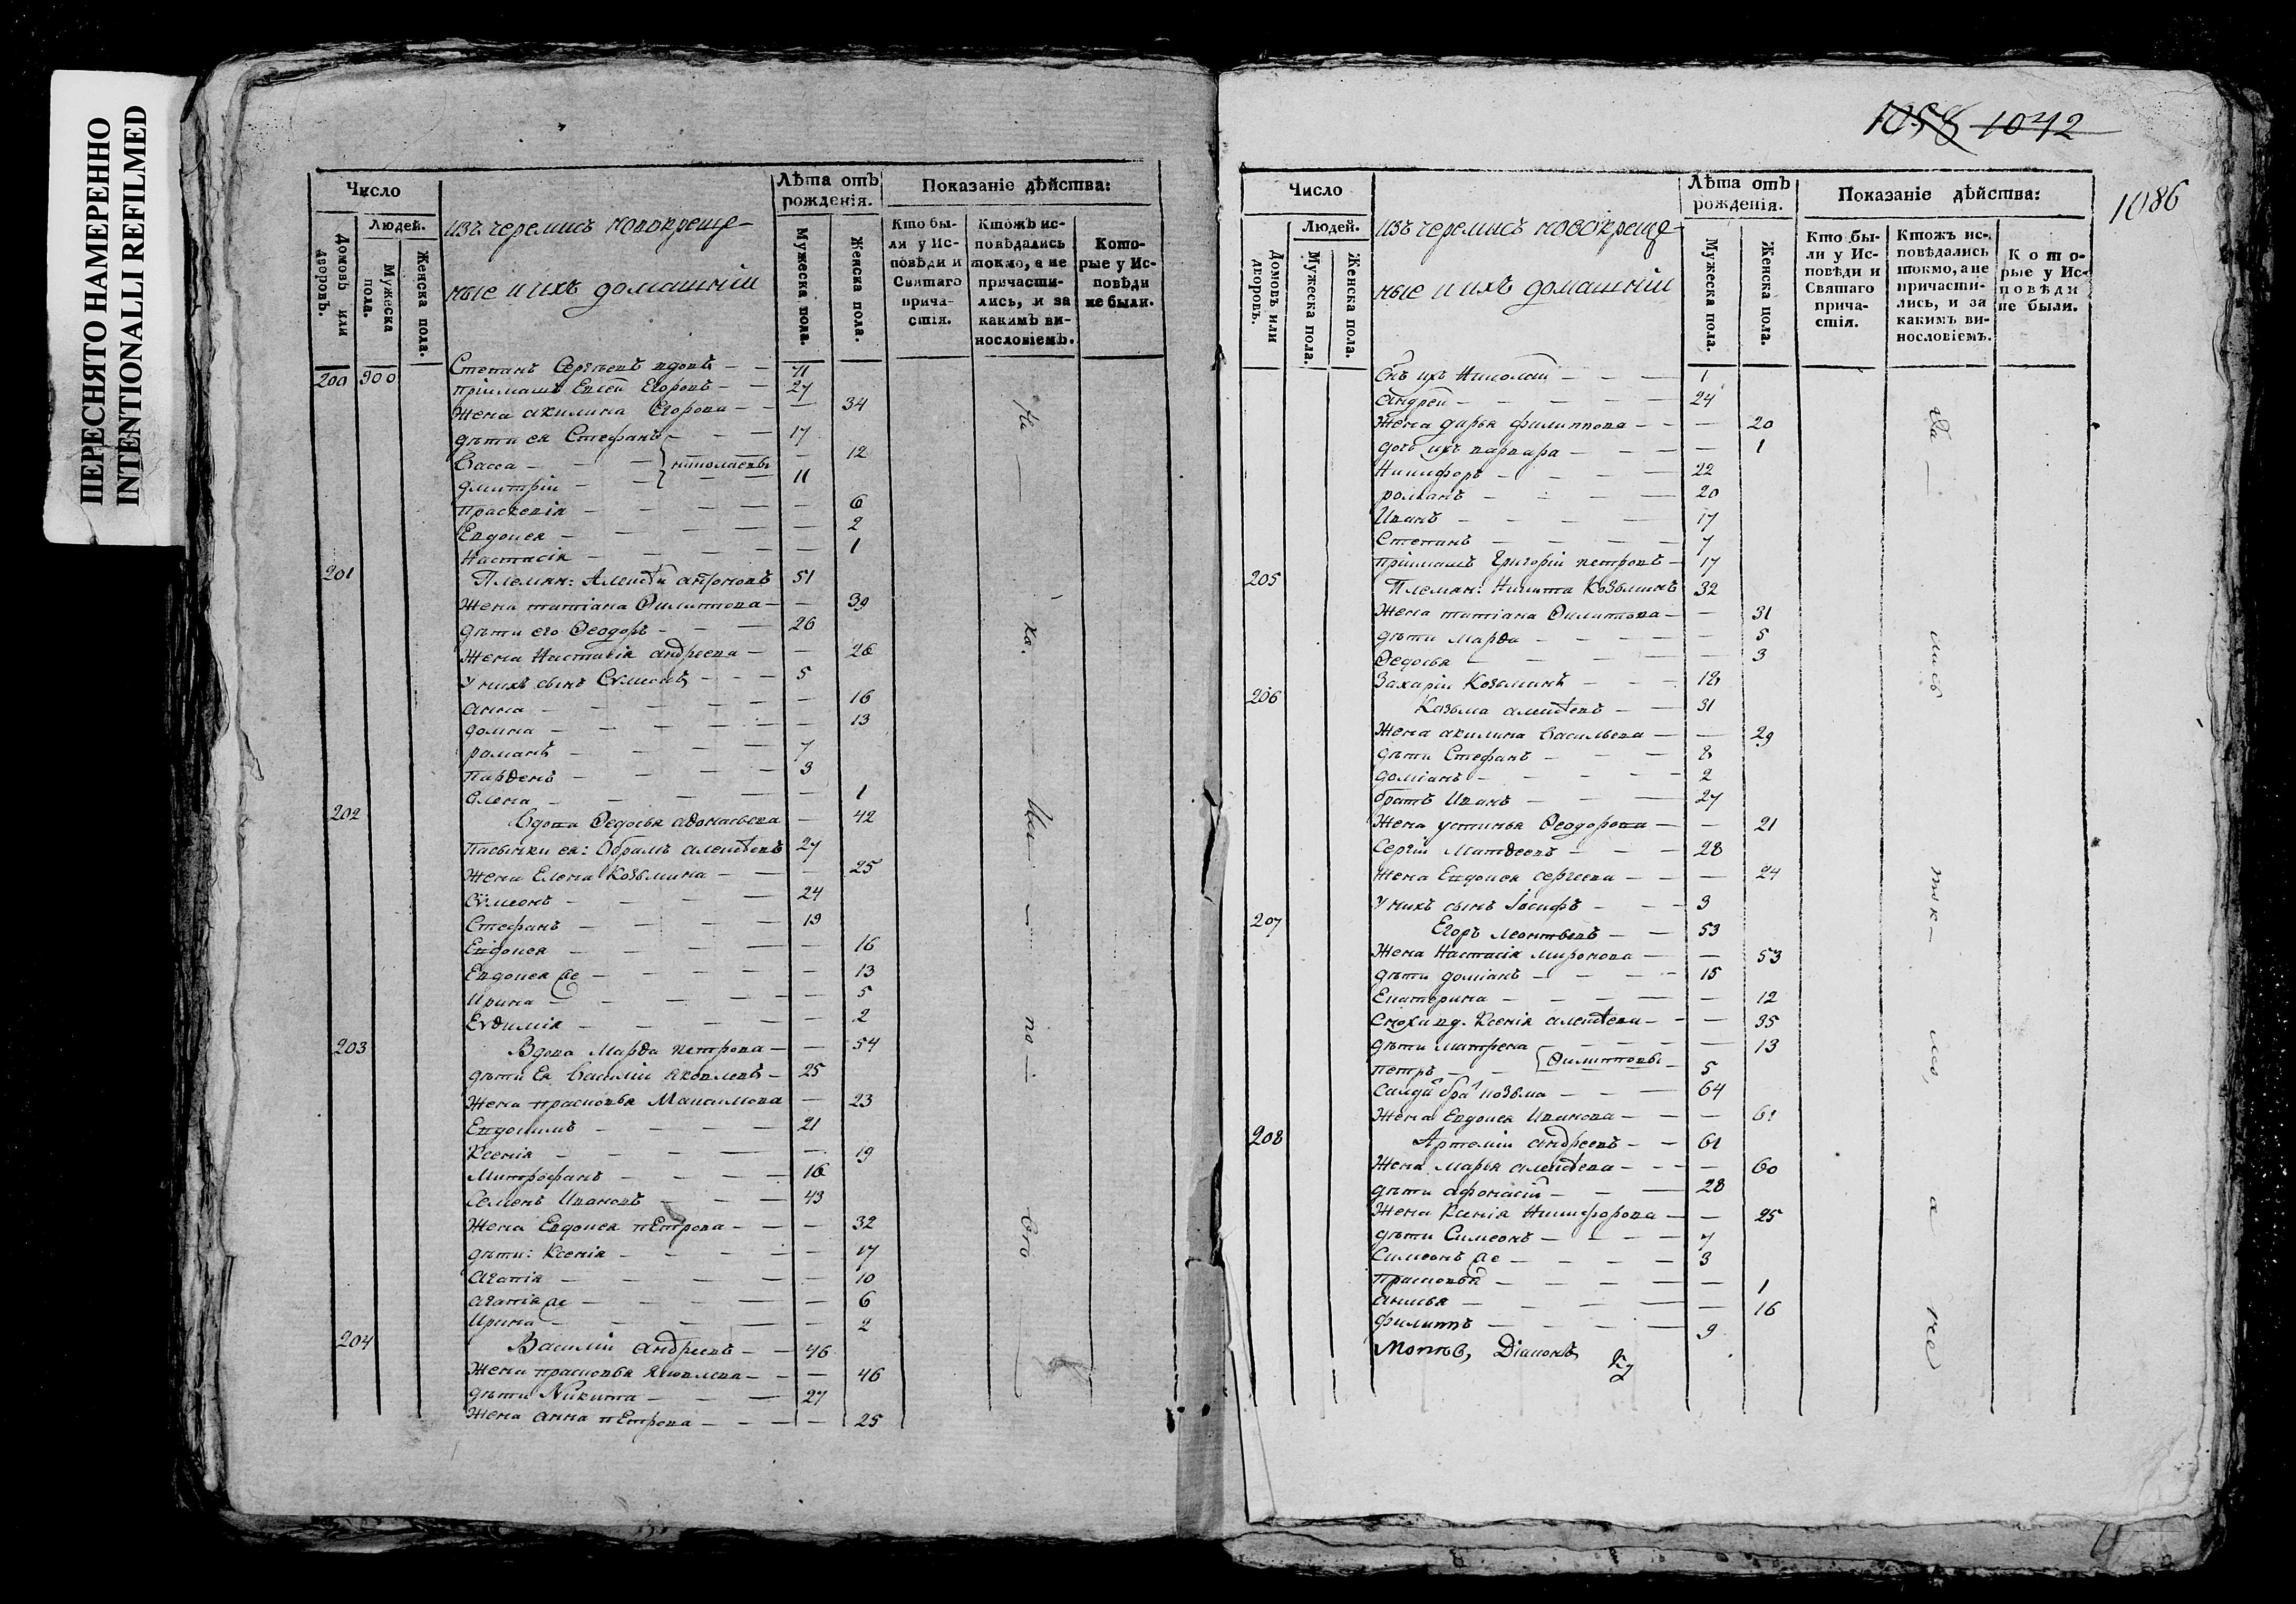 ПЕРЕСНЯТО НАМЕРЕННО
INTENTIONALLI REFILMED
Число
Людей.
Домовъ или дворовъ.
Мужеска пола.
Женска пола.
изъ черемисъ новокреще-
ные и ихъ домашнїи
Лѣта отъ рожденїя.
Мужеска пола.
Женска пола.
Показанїе дѣйства:
Кто бы-
ли у Ис-
повѣди и
Святаго
прича-
стїя.
Ктожъ ис-
повѣдались
токмо, а не
причасти-
лись, и за
какимъ ви-
нословїемъ.
Кото-
рые у Ис-
повѣди
не были.
200 900 Степанъ Сергѣевъ вдовъ 71
прїимашъ Евсей Егоровъ 27
Жена акилина Егорова 34
дѣти ея Стефанъ 17
Васса 12
дмитрїи 11
Праскевїя 6
Евдокея 2
Настасїя 1
201 Племян: Алексѣй 51
Жена татїана Ѳилипова 39
дѣти его Ѳеодоръ 26
Жена Настасїя андреева 26
У нихъ сынъ Сѵмеонъ 5
анна 16
домна 13
романъ 7
Парѳенъ 3
Елена 1
202 Вдова Ѳедосья аѳонасьева 42
Пасынки ея: алексѣевъ 27
Жена Елена Козьмина 25
Сѵмеонъ 24
Стефанъ 19
Евдокея 16
Евдокея же 13
Ирина 5
Евѳимїя 2
203 Вдова Марѳа петрова 54
дѣти Ея Василїи яковлевъ 25
Жена прасковья Максимова 23
Евдокимъ 21
Ксенїя 19
Митрофанъ 16
Семенъ Ивановъ 43
Жена Евдокея пЕтрова 32
дѣти: Ксенїя 17
агапїя 10
агапїя же 6
Ирина 2
204 Василїи андреевъ 46
Жена прасковья яковлева 46
дѣти Никита 27
Жена анна пЕтрова 25
1058 1042
1086
Число
Людей.
Домовъ или дворовъ.
Мужеска пола.
Женска пола.
изъ черемисъ новокреще-
ные и ихъ домашнїи
Лѣта отъ рожденїя.
Мужеска пола.
Женска пола.
Показанїе дѣйства:
Кто бы-
ли у Ис-
повѣди и
Святаго
прича-
стїя.
Ктожъ ис-
повѣдались
токмо, а не
причасти-
лись, и за
какимъ ви-
нословїемъ.
Кото-
рые у Ис-
повѣди
не были.
Снъ ихъ Николай 1
андрей 24
Жена дарья филиппова 20
дочь ихъ варвара 1
Никифоръ 22
романъ 20
Иванъ 17
Степанъ 7
прїимашъ Григорїи петровъ 17
205 Племян: Никита Козьминъ 32
Жена татїана Филипова 31
дѣти Марѳа 5
Ѳедосья 3
Захарїи Козьминъ 18
206 Козьма алексѣевъ 31
Жена акилина Васильева 29
дѣти Стефанъ 8
домїанъ 2
братъ Иванъ 27
Жена устинья Ѳеодорова 21
Сергїи Матвеевъ 28
Жена Евдокея сергеева 24
У нихъ сынъ Iосифъ 3
207 Егоръ леонтьевъ 53
Жена Настасїя миронова 53
дѣти домїанъ 15
Екатерина 12
Сноха вд. Ксенїя алексѣева 35
дѣти матрена 13
петръ Ѳилиповы 5
козьма 64
Жена Евдокея Иванова 61
208 Артемїи андреевъ 61
Жена марья алексѣева 60
дѣти афонасїй 28
Жена Ксенїя Никифорова 25
дѣти Симеонъ 7
Симеонъ же 3
прасковья 1
анисья 16
филиппъ 9
Поповъ, Дїаконъ